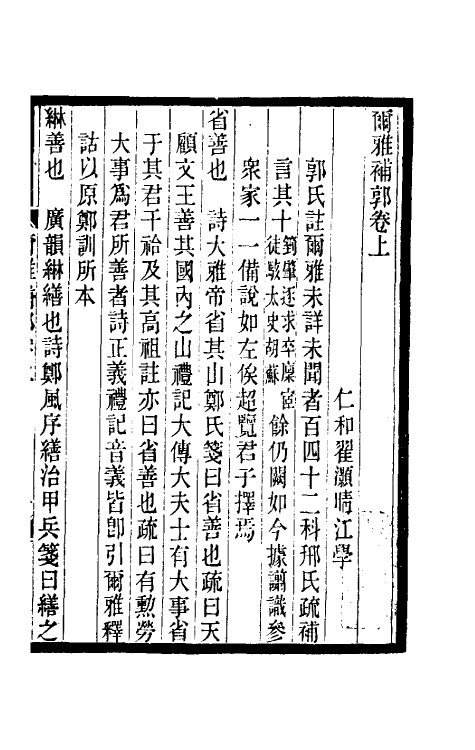 爾雅補郭卷上
仁和翟灝晴江學
郭氏註爾雅未詳未聞者百四十二科邢氏疏補
言其十箌肇逐求卒廩宧徒駭太史胡蘇餘仍闕如今據謭識參
衆家一一備說如左俟超覽君子擇焉
省善也　詩大雅帝省其山鄭氏箋曰省善也疏曰天
顧文王善其國內之山禮記大傳大夫士有大事省
于其君干祫及其高祖註亦曰省善也疏曰有勲勞
大事爲君所善者詩正義禮記音義皆卽引爾雅釋
詁以原鄭訓所本
綝善也　廣韻綝繕也詩鄭風序繕治甲兵箋曰繕之